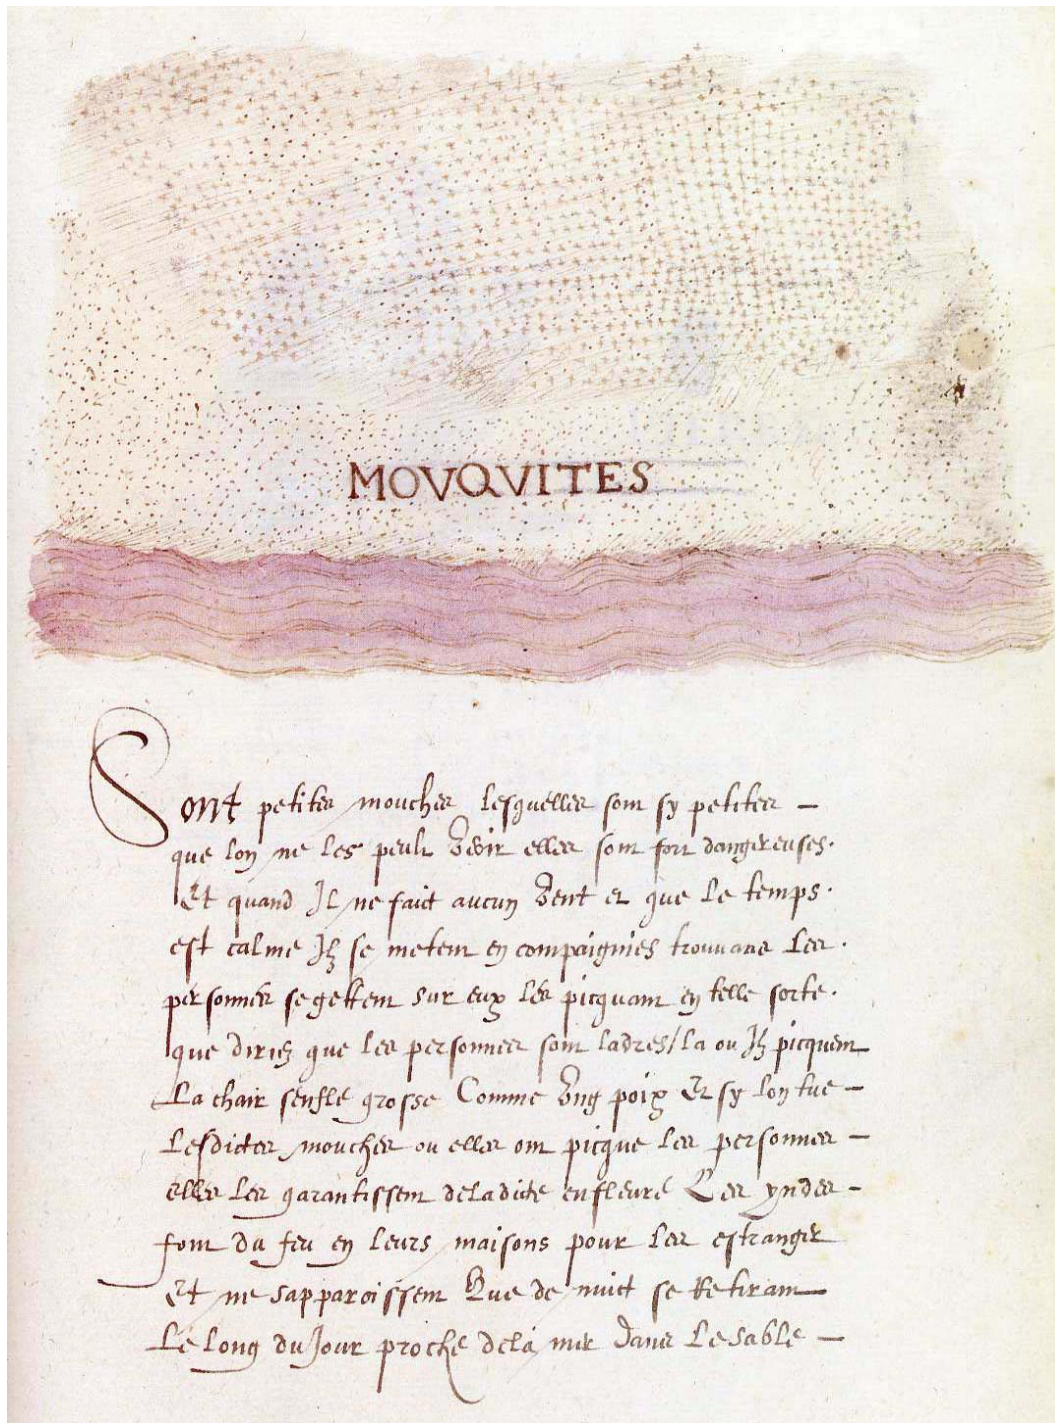 MOVQVITES
Sont petites mouches lesquelles sont sy petites –
que lon ne les peult veoir elles sont fort dangereuses.
Et quand Il ne faict aucun vent et que le temps.
est calme Ilz se metent en compaignies trouvans les.
personnes se gettent sur eux les picquant en telle sorte.
que diriez que les personnes sont ladres/la ou Ilz picquent
La chair senfle grosse Comme ung poix Et sy lon tue –
Lesdictes mouches ou elles ont picque les personnes –
elles les garantissent deladicte enfleure Les yndes –
font du feu en leurs maisons pour les estranger
Et ne sapparoissent Que de nuict se Retirant
Le long du Jour proche dela mer dans Lesable –